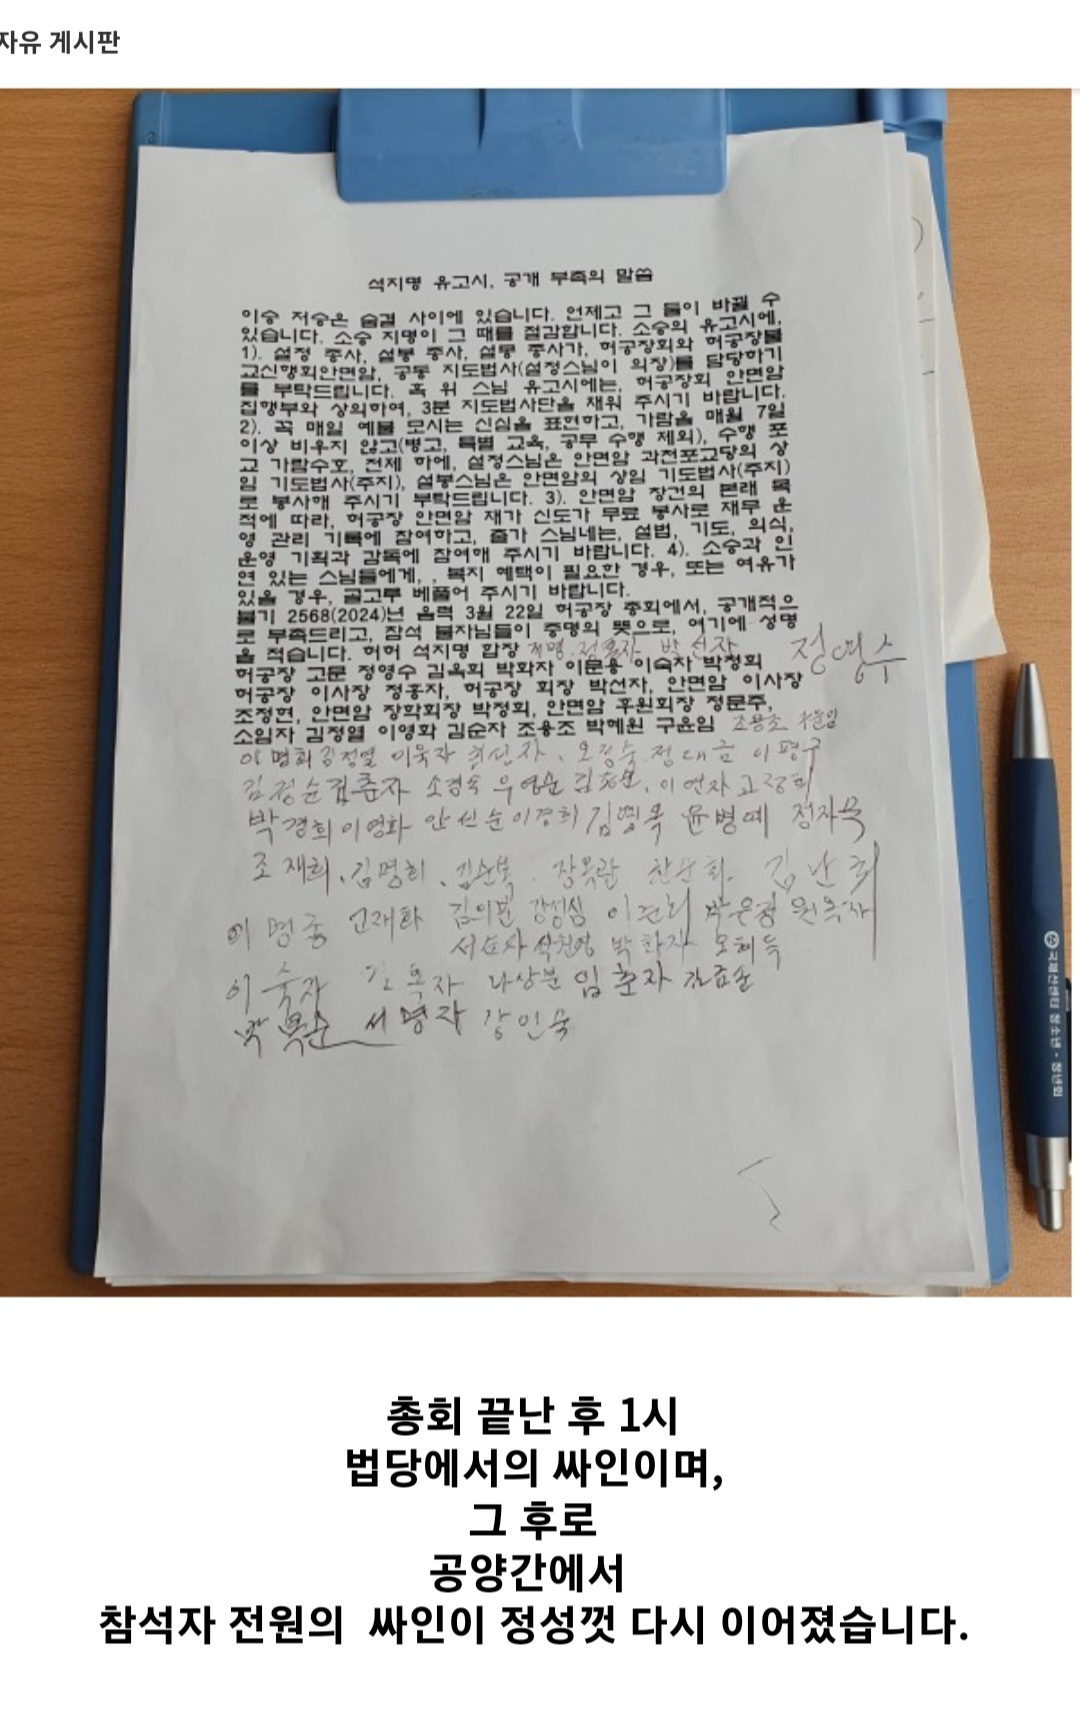 자유 게시판
석지명 유고시, 공개 부촉의 말씀
이승 저승은 숨결 사이에 있습니다. 언제고 그 둘이 바뀔 수
있습니다. 소승 지명이 그 때를 절감합니다. 소승의 유고시에,
1). 설정 종사, 설봉 종사, 설룡 종사가, 허공장회와 허공장불
교신행회안면암, 공동 지도법사(설정스님이 의장)를 담당하기
를 부탁드립니다. 혹 위 스님 유고시에는, 허공장회 안면암
집행부와 상의하여, 3분 지도법사단을 채워 주시기 바랍니다.
2). 꼭 매일 예불 모시는 신심을 표현하고, 가람을 매월 7일
이상 비우지 않고(병고, 특별 교육, 공무 수행 제외), 수행 포
교 가람수호, 전제 하에, 설정스님은 안면암 과천포교당의 상
임 기도법사(주지), 설봉스님은 안면암의 상임 기도법사(주지)
로 봉사해 주시기 부탁드립니다. 3). 안면암 창건의 본래 목
적에 따라, 허공장 안면암 재가 신도가 무료 봉사로 재무 운
영 관리 기록에 참여하고, 출가 스님네는, 설법, 기도, 의식,
운영 기획과 감독에 참여해 주시기 바랍니다. 4). 소승과 인
연 있는 스님들에게, , 복지 혜택이 필요한 경우, 또는 여유가
있을 경우, 골고루 베풀어 주시기 바랍니다.
불기 2568(2024)년 음력 3월 22일 허공장 총회에서, 공개적으
로 부촉드리고, 참석 불자님들이 증명의 뜻으로, 여기에 성명
을 적습니다. 허허 석지명 합장 지명 정홍자 박선자 정영수
허공장 고문 정영수 김옥희 박화자 이문용 이숙자 박정희
허공장 이사장 정홍자, 허공장 회장 박선자, 안면암 이사장
조정현, 안면암 장학회장 박정희, 안면암 후원회장 정문주,
소임자 김정열 이영화 김순자 조용조 박혜원 구윤임 조용조 구윤임
이명희 김정열 이묵자 최선자 오경숙 정대금 이평구
김정순 김춘자 소경숙 우영순 이연자 고정희
박경희 이영화 안신순 이경희 김명옥 윤병예 정자옥
조재희, 김명희, 김순복 장옥란 김난희
이명종 고재화 김의분 강성심 이진희 박은경 원옥자
박화자 오혜득
이숙자 나상분 임춘자 김금순
박복순 서명자 강인숙
국제선센터 청소년 · 청년회
총회 끝난 후 1시
법당에서의 싸인이며,
그 후로
공양간에서
참석자 전원의 싸인이 정성껏 다시 이어졌습니다.